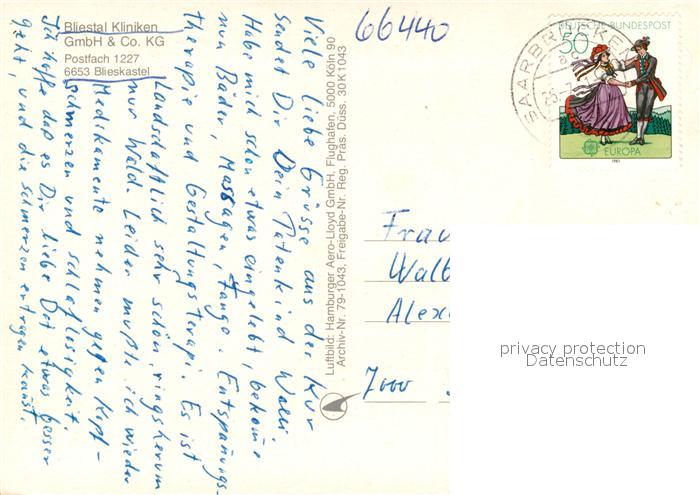 Bliestal Kliniken
GmbH & Co. KG
Postfach 1227
6653 Blieskastel
66440
Viele liebe Grüsse aus der Kur
sendet Dir Dein Patenkind Walli
Habe mich schon etwas eingelebt, bekomme
nun Bäder, Massagen, Fango. Entspannungs-
therapie und Gestaltungsterapi. Es ist
Landschaftlich sehr schön, ringsherum
nur Wald. Leider mußte ich wieder
Medikamente nehmen gegen Kopf-
schmerzen und schlaflosigkeit.
Ich hoffe daß es Dir liebe Dot etwas besser
geht, und die schmerzen ertragen kanst.
Luftbild: Hamburger Aero-Lloyd GmbH, Flughafen, 5000 Köln 90
Archiv-Nr. 79-1043, Freigabe-Nr. Reg. Präs. Düss. 30 K 1043
SAARBRÜCKEN
25.-7
DEUTSCHE BUNDESPOST
50
EUROPA
1981
Frau
Walb
Alex
7000
privacy protection
Datenschutz